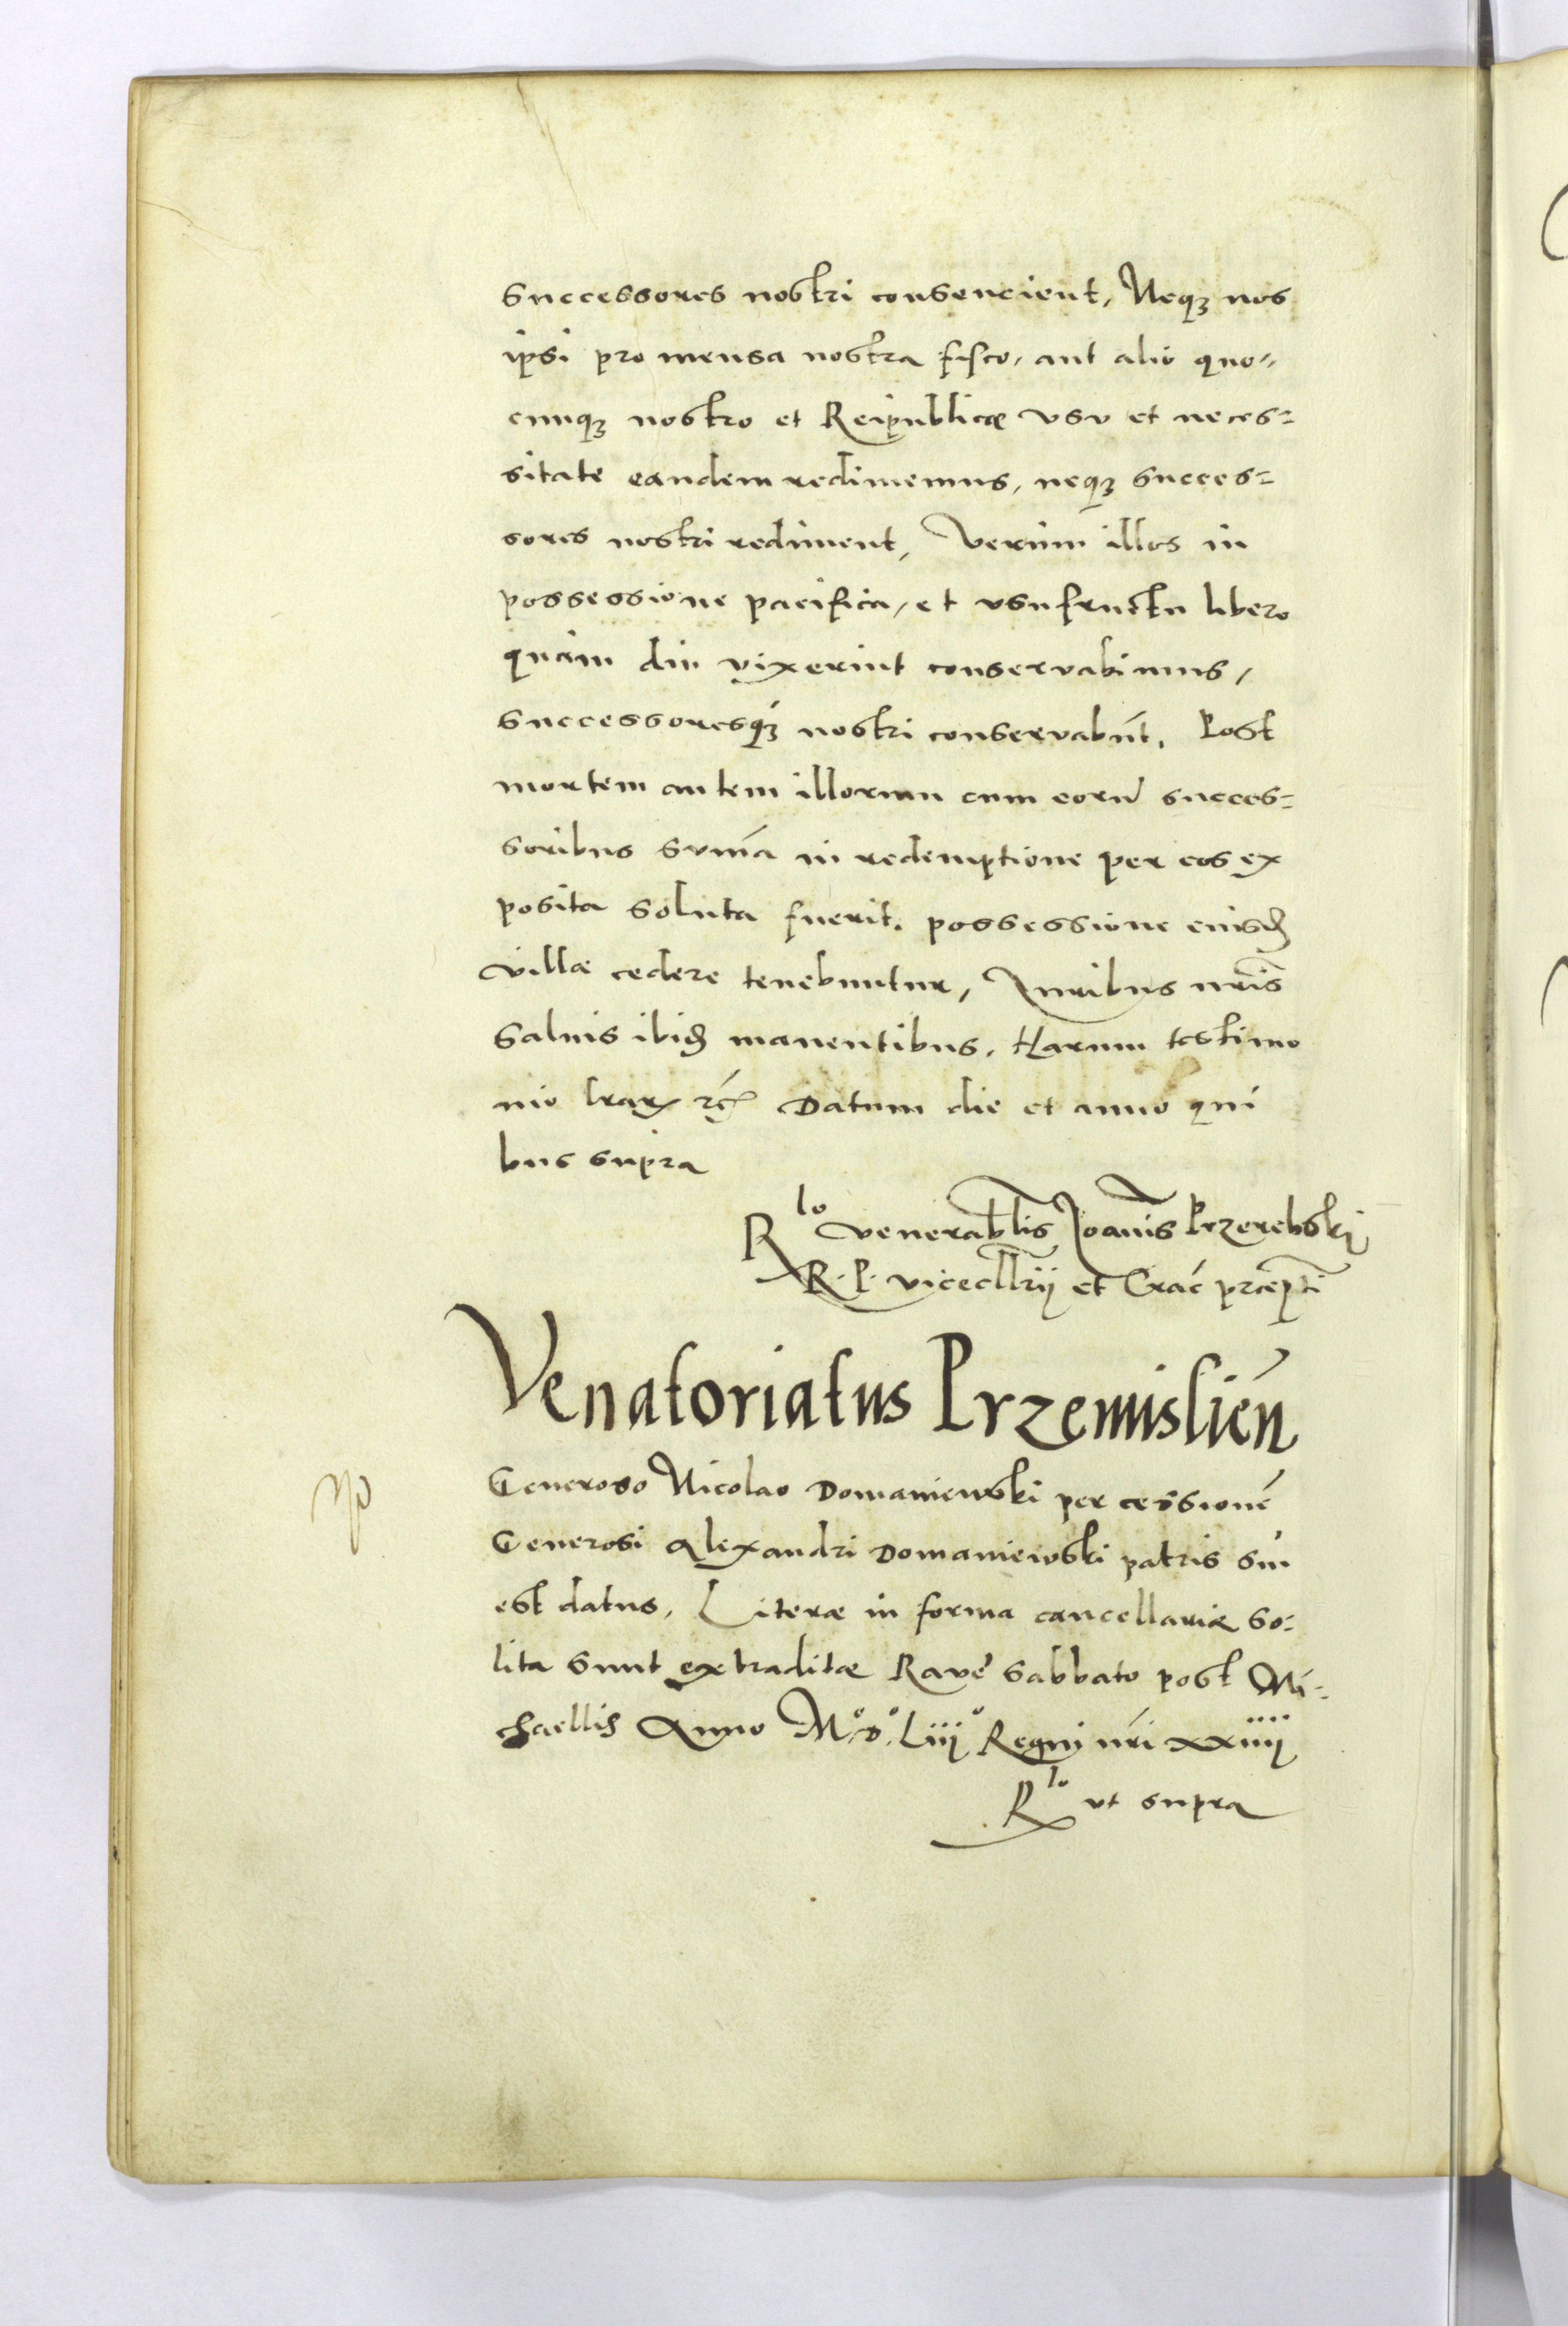 successores nostri consencient, Neqꝫ nos
ipsi pro mensa nostra fisco, aut alio quo-
cunqꝫ nostro et Reipublicæ vsu et neces=
sitate eandem redimemus, neqꝫ succes=
sores nostri rediment, Verùm illos in
possessione pacifica, et vsufructu libero
quàm diu vixerint conservabimus,
successoresqꝫ nostri conservabũt. Post
mortem autem illorum cum eorũ succes=
soribus sum̃a in redemptione per eos ex
posita soluta fuerit. possessione eiusd̃
villæ cedere tenebuntur, Iuribus nr̃is
saluis ibid̃ manentibus. Harum testimo
nio lrarꝝ rc̃ Datum die et anno qui
bus supra
R lo venerab̃lis Joannis Przerebski
R. P. vicecllrij et Crac̃ præpti
Venatoriatus Przemisliẽn
Generoso Nicolao Domaniewski per cessionẽ
Generosi Alexandri Domaniewski patris sui
est datus. Literæ in forma cancellariæ so-
lita sunt extraditæ Ravẽ sabbato post Mi-
chaellis Anno M.º D.º Liijº Regni nr̃i xxiiij
R lo vt supra